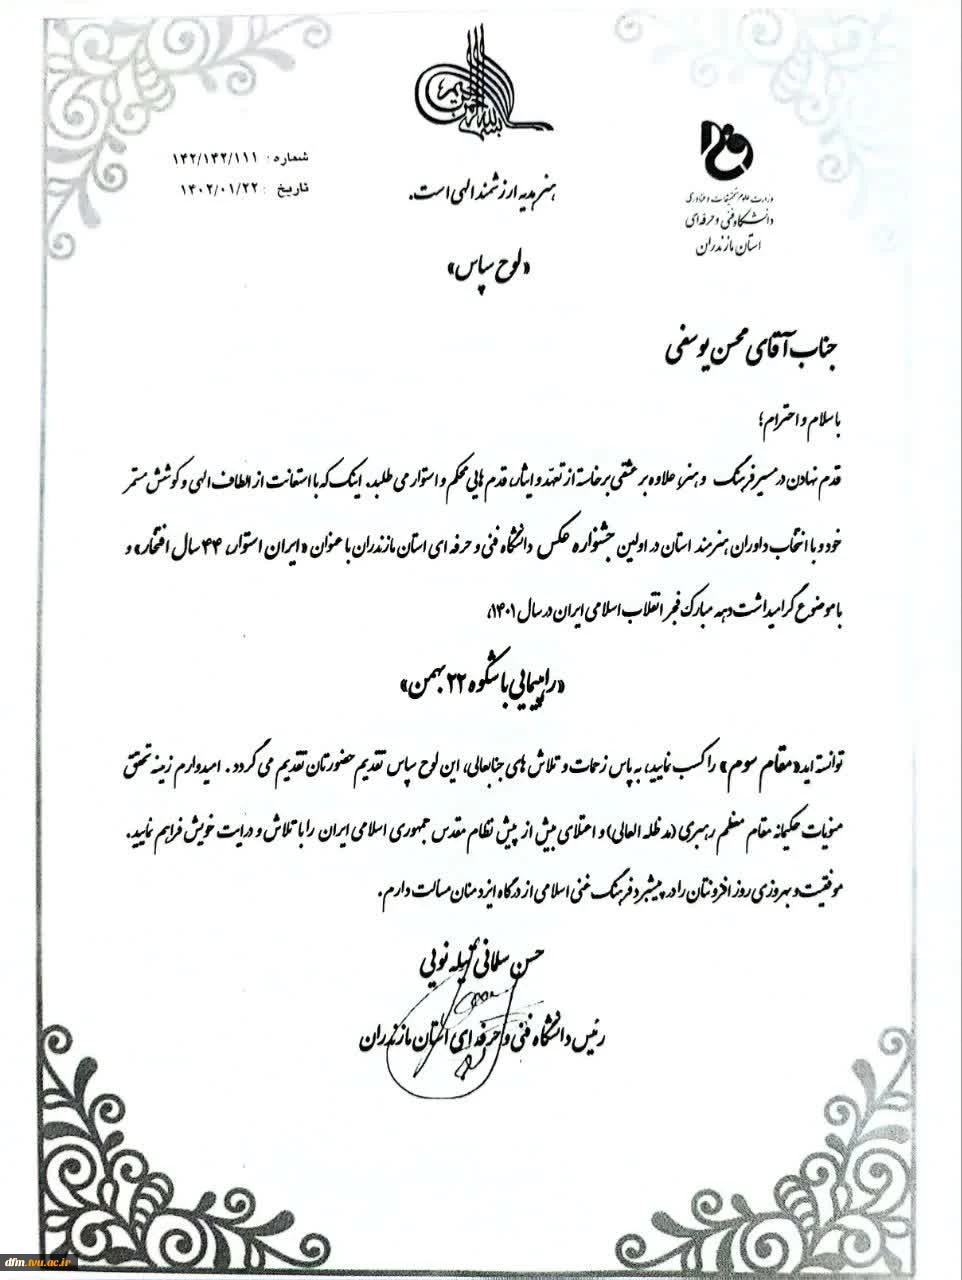 بسم الله الرحمن الرحیم
شماره : ۱۴۲/۱۴۲/۱۱۱
تاریخ : ۱۴۰۲/۰۱/۲۲
وزارت علوم تحقیقات و فناوری
دانشگاه فنی و حرفه‌ای
استان مازندران
هنر هدیه ارزشمند الهی است.
«لوح سپاس»
جناب آقای محسن یوسفی
با سلام و احترام؛
قدم نهادن در مسیر فرهنگ و هنر، علاوه بر عشقی برخاسته از تعهد و ایثار، قدم هایی محکم و استوار می طلبد. اینک که با استعانت از الطاف الهی و کوشش مستمر
خود و با انتخاب داوران هنرمند استان در اولین جشنواره عکس دانشگاه فنی و حرفه ای استان مازندران با عنوان «ایران استوار، ۴۴ سال افتخار» و
با موضوع گرامیداشت دهه مبارک فجر انقلاب اسلامی ایران در سال ۱۴۰۱،
«راهپیمایی با شکوه ۲۲ بهمن»
توانسته اید «مقام سوم» را کسب نمایید، به پاس زحمات و تلاش های جنابعالی، این لوح سپاس تقدیم حضورتان تقدیم می گردد. امیدوارم زمینه تحقق
منویات حکیمانه مقام معظم رهبری (مد ظله العالی) و اعتلای بیش از پیش نظام مقدس جمهوری اسلامی ایران را با تلاش و درایت خویش فراهم نمایید.
موفقیت و بهروزی روز افزونتان را در پیشبرد فرهنگ غنی اسلامی از درگاه ایزد منان مسالت دارم.
حسن سلمانی قهیله نویی
رئیس دانشگاه فنی و حرفه ای استان مازندران
dfm.tvu.ac.ir